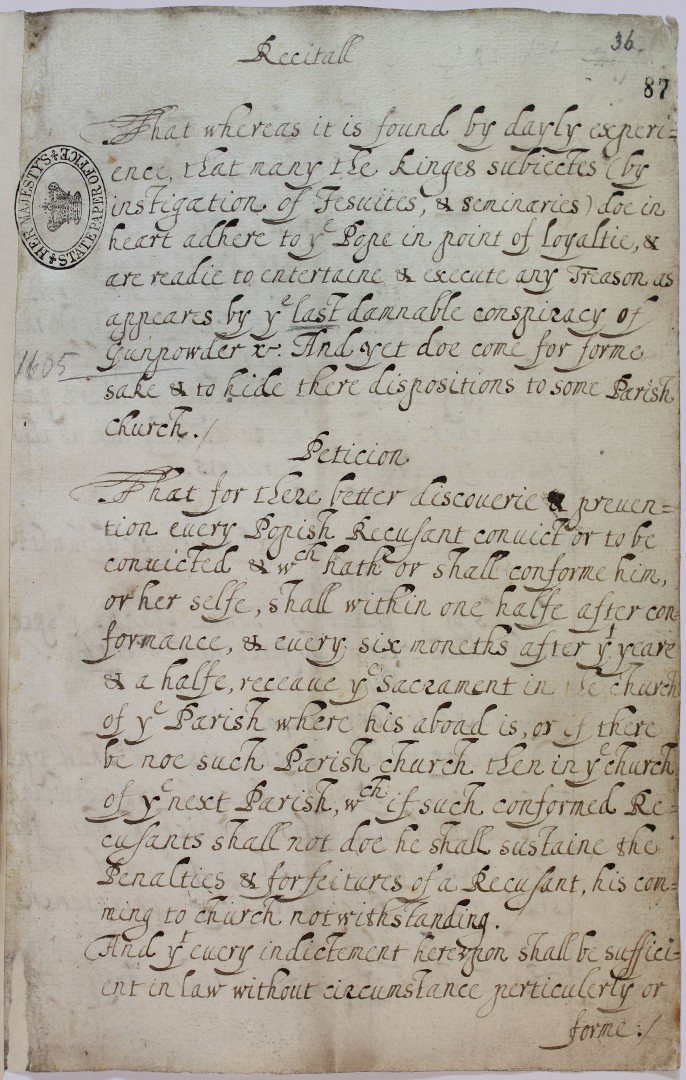 36
Recitall
87
That whereas it is found by dayly experi=
ence, that many the Kinges subiectes (by
instigation of Jesuites, & seminaries) doe in
heart adhere to ye Pope in point of loyaltie, &
are readie to entertaine & execute any Treason as
appeares by ye last damnable conspiracy of
Gunpowder &c. And yet doe come for forme
1605
sake & to hide there dispositions to some Parish
church./
HER MAJESTY'S STATE PAPER OFFICE
Peticion
That for there better discouerie & preuen=
tion euery Popish Recusant convict or to be
convicted & wch hath or shall conforme him,
or her selfe, shall within one halfe after con=
formance, & euery six moneths after yt yeare
& a halfe, receaue ye Sacrament in the church
of ye Parish where his aboad is, or if there
be noe such Parish church then in ye church
of ye next Parish, wch if such conformed Re=
cusants shall not doe he shall sustaine the
Penalties & forfeitures of a Recusant, his com=
ming to church notwithstanding.
And yt euery indictement herevpon shall be suffici=
ent in law without circumstance perticulerly or
forme:/